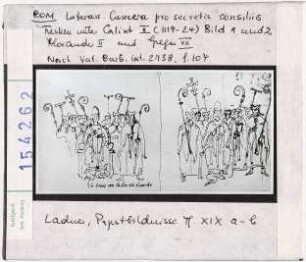 ROM Lateran. Camera pro secretis consiliis
neben unter Calixt II (1119-24) Bild 1 und 2
Alexander II und Gregor VII
Nach Vat. Barb. lat. 2738, f. 107
154262
Ladner, Papstbildnisse Tf. XIX a-b